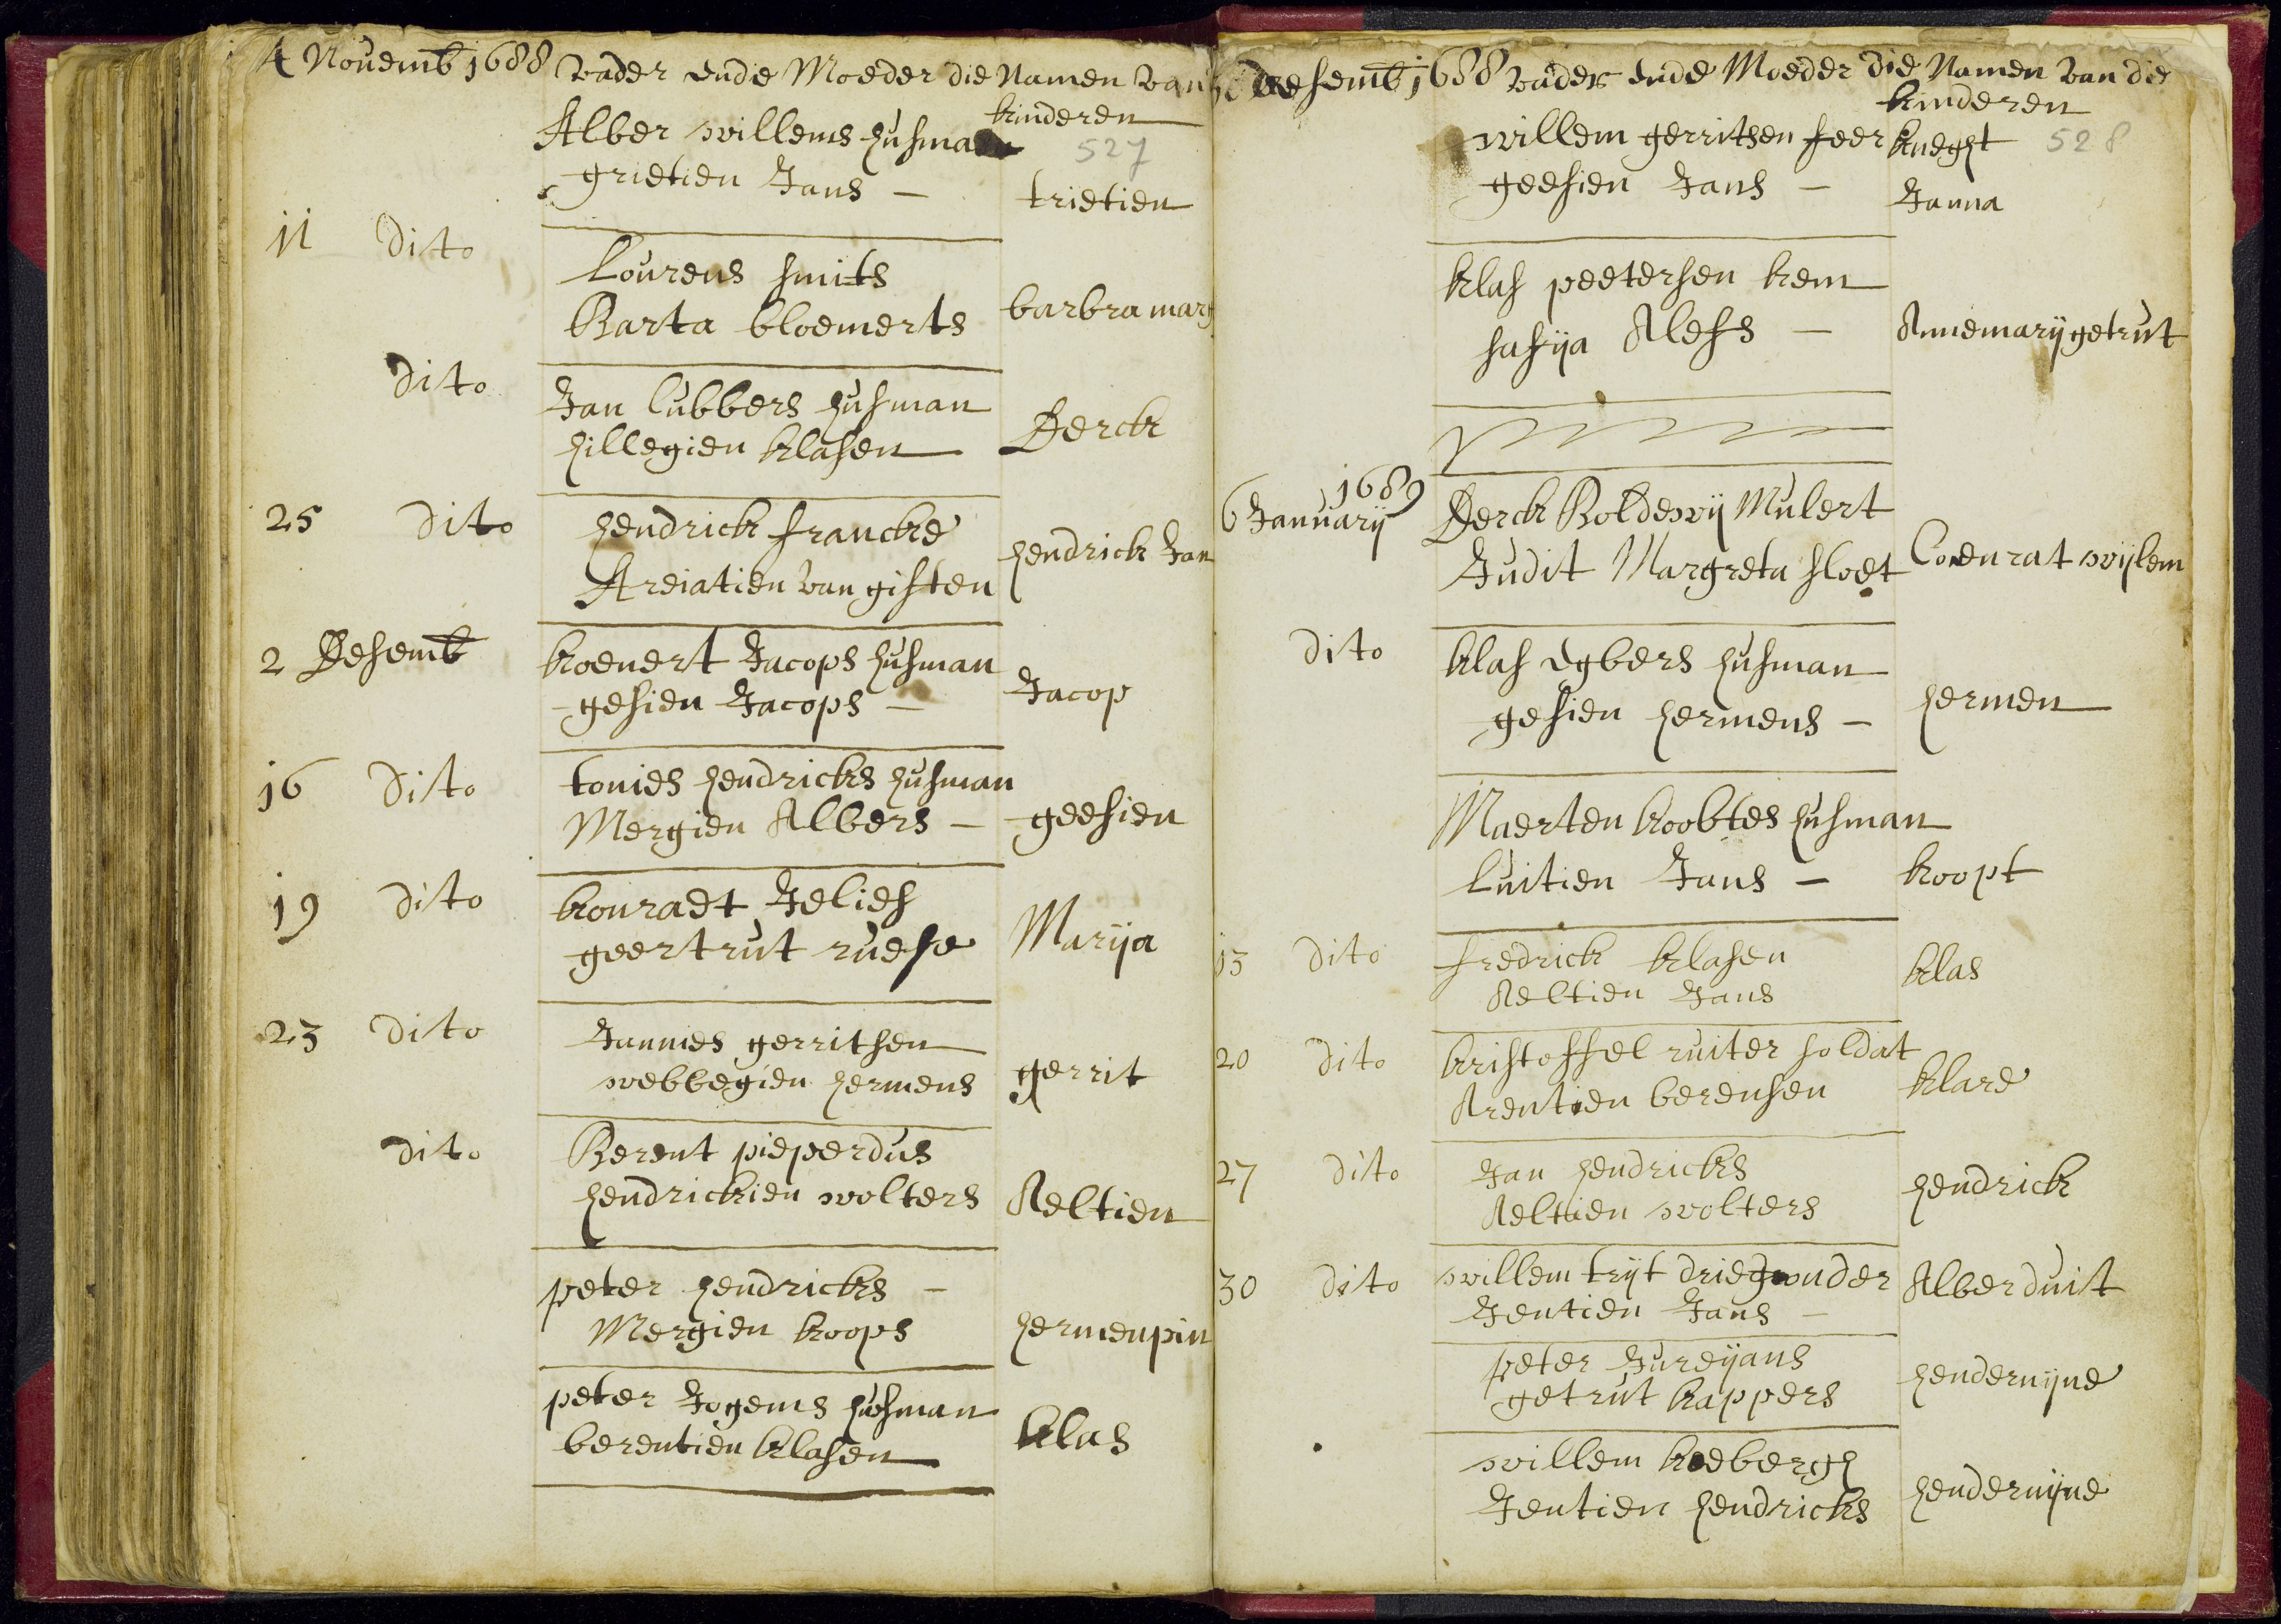 4 Novemb 1688 vader ende Moeder die Namen van
kinderen
527
Alber willems husman
grietien Jans – trietien
11 dito Lourens smits
Barta bloemerts barbra marg
dito Jan lubbers husman
hillegien klasen Derck
25 dito hendrick francke
Areiatien van gisten hendrick Jan
2 Desemb koenert Jacops husman
gesien Jacops – Jacop
16 dito tonies hendricks husman
Mergien Albers – geesien
19 dito konradt Jelies
geertrut ruese Marija
23 dito Jannies gerritsen
webbegien hermens gerrit
dito Berent pieperdus
hendrickien wolters Aeltien
peter hendricks –
Mergien koops hermenpin
peter Jogems husman
berentien klasen klas
desemb 1688 vader ende Moeder die Namen van die
kinderen
528
willem gerritsen feer knegt
geesien Jans – Janna
klas peetersen krem
safija Alefs – Annemarijgetrut
1689
6 Januarij Derck Boldewij Mulert
Judit Margreta sloet Coenrat wijlem
dito klas egbers husman
gesien hermens – hermen
Maerten koobtes husman
luitien Jans – koopt
13 dito fredrick klasen
Aeltien Jans klas
20 dito kristoffel ruiter soldat
Arentien berensen klare
27 dito Jan hendricks
Aeltien wolters hendrick
30 dito willem trijt driegonder
Jentien Jans – Alberduit
peter Jureijans
getrut kappers hendernijne
willem koebergh
Jentien hendricks hendernijne